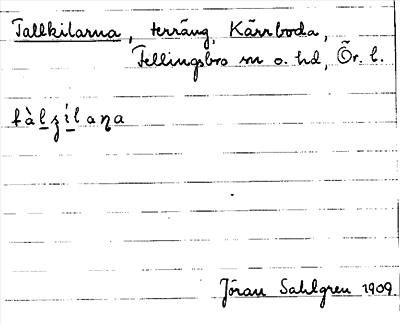 Tallkilarna, terräng, Kärrboda,
Fellingsbro sn o. hd, Ör. l.
Jöran Sahlgren 1909